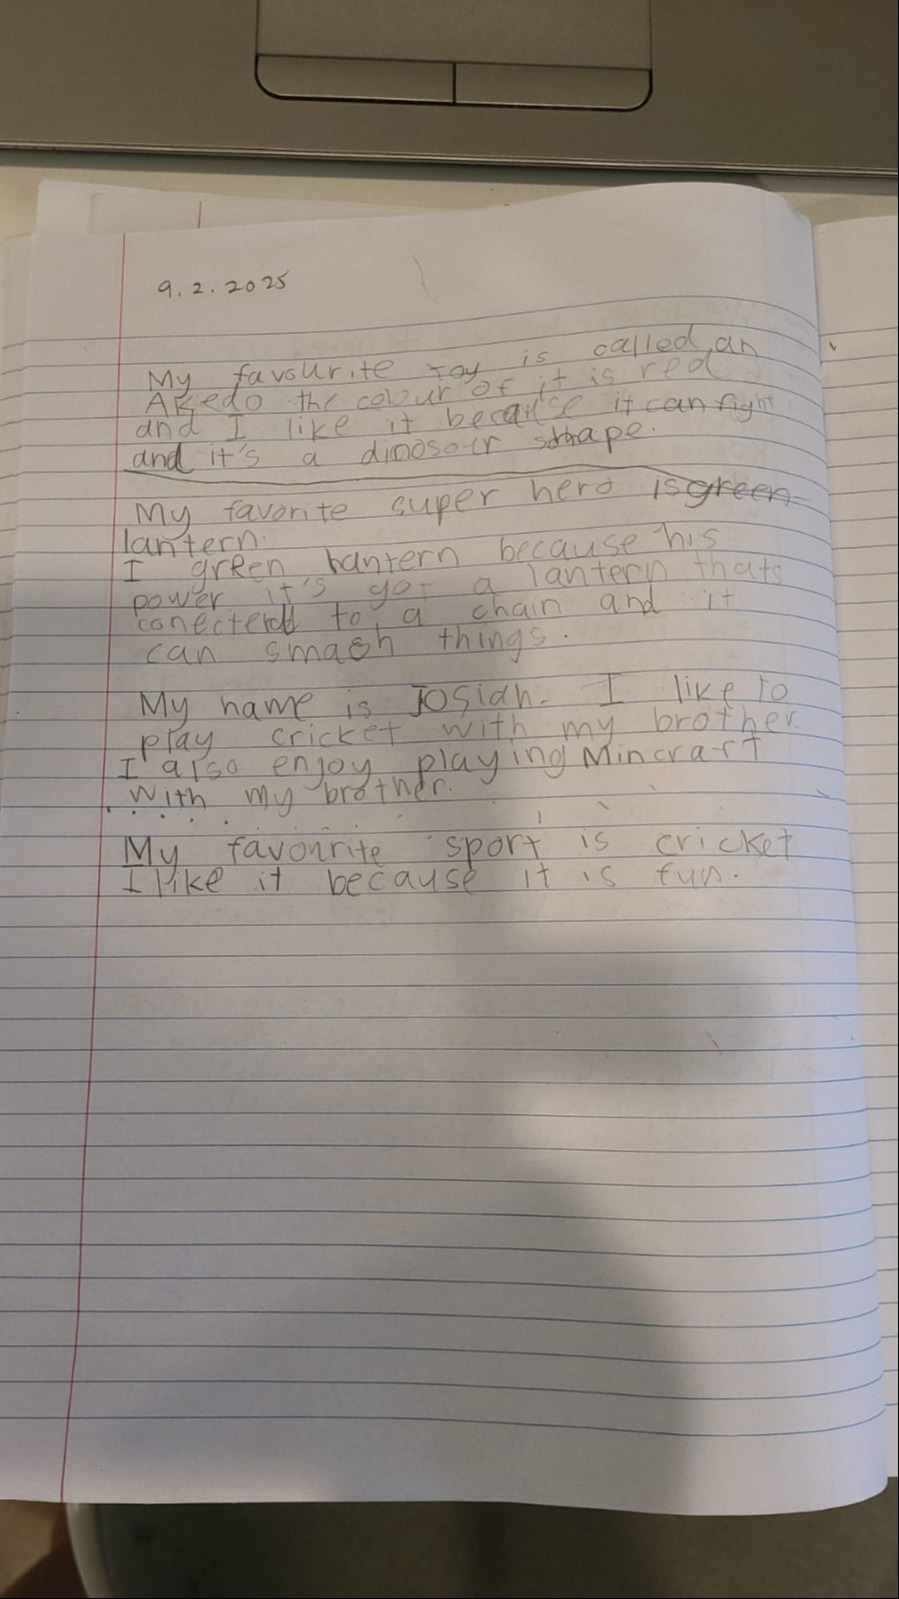 9.2.2025
My favourite toy is called an
Akedo the colour of it is red
and I like it because it can fight
and it's a dinosour shape.
My favorite super hero is green
lantern.
I green hantern because his
power it's got a lantern thats
conected to a chain and it
can smash things.
My name is Josiah. I like to
play cricket with my brother.
I also enjoy playing Mincraft
with my brother.
My favourite sport is cricket
I like it because it is fun.